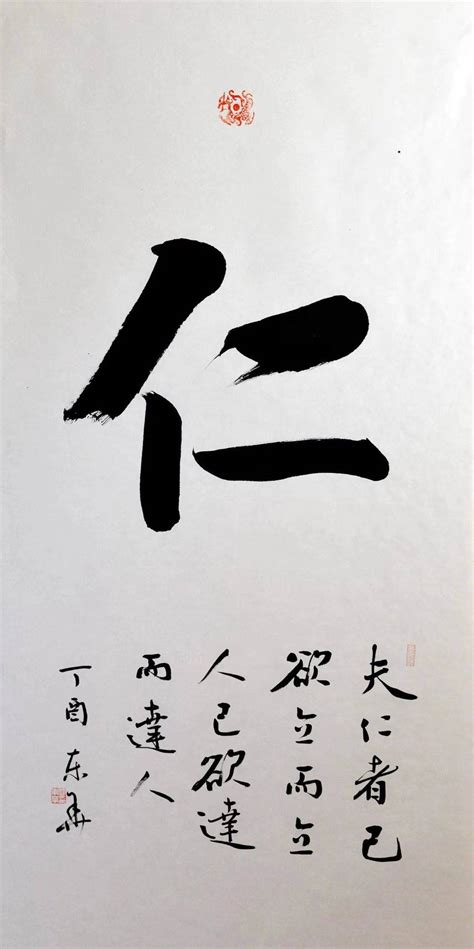 仁
夫仁者己
欲立而立
人己欲達
而達人
丁酉东华